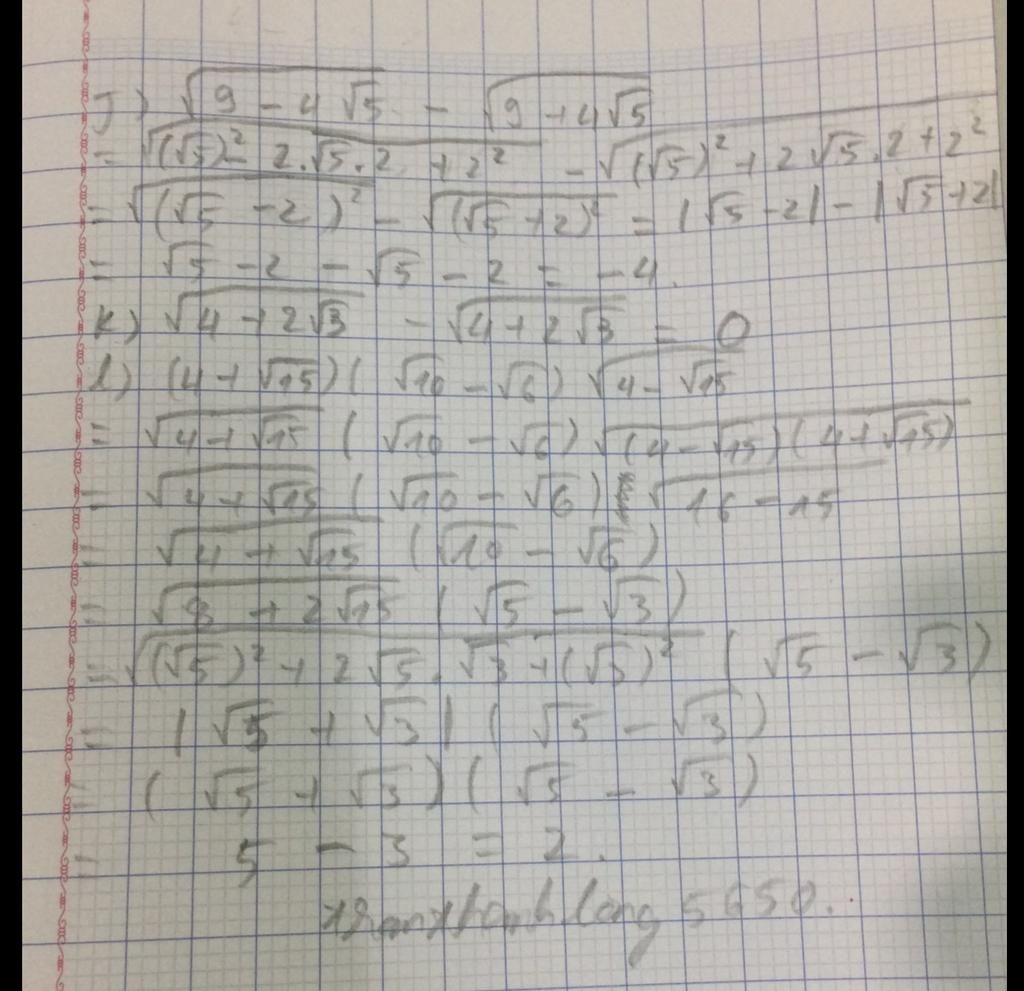 J) √(9 - 4√5) - √(9 + 4√5)
= √((√5)² - 2.√5.2 + 2²) - √((√5)² + 2√5.2 + 2²)
= √((√5 - 2)²) - √((√5 + 2)²) = |√5 - 2| - |√5 + 2|
= √5 - 2 - √5 - 2 = -4.
k) √(4 + 2√3) - √(4 + 2√3) = 0
l) (4 + √15)(√10 - √6)√(4 - √15)
= √(4 + √15) (√10 - √6) √((4 - √15)(4 + √15))
= √(4 + √15) (√10 - √6) √(16 - 15)
= √(4 + √15) (√10 - √6)
= √(8 + 2√15) (√5 - √3)
= √((√5)² + 2√5.√3 + (√3)²) (√5 - √3)
= |√5 + √3| (√5 - √3)
= (√5 + √3)(√5 - √3)
= 5 - 3 = 2.
5650.